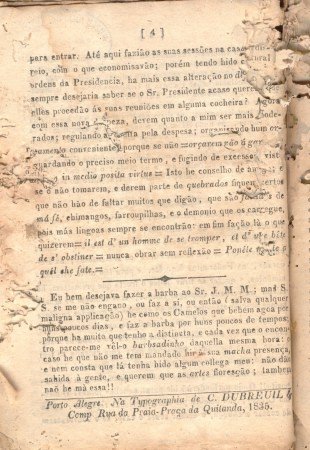 [ 4 ]
para entrar. Até aqui fazião as suas sessões na casa
reio, com o que economisavão; porém tendo hido
ordens da Presidencia, ha mais essa alteração no
sempre desejaria saber se o Sr. Presidente acaso
elles procedão ás suas reuniões em alguma cocheira? Agora
com essa nova derem quanto a mim ser mais
rados; regulando a pela despesa; organisando hum or-
momento conveniente, porque se não = orçarem não á
guardando o preciso meio termo, e fugindo de excessos, vist
in medio posita virtus = Isto he conselho de
se o não tomarem, e derem parte de quebrados fiquem certos
que não hão de faltar muitos que digão, que são de
má fé, chimangos, farroupilhas, e o demonio que os carregue,
pois más lingoas sempre se encontrão: em fim fação lá o que
quizerem = il est d' un homme de se tromper, et d' une bête
de s' obstiner = nunca obrar sem reflexão = o
quél she fate. =
Eu bem desejava fazer a barba ao Sr. J. M. M.; mas S.
S. se me não engano, ou faz a si, ou então ( salva qualquer
maligna applicação ) he como os Camelos que bebem agoa por
huns poucos dias, e faz a barba por huns poucos de tempos;
porque ha muito que tenho a distincta, e cada vez que o encon-
tro parece-me vêl-o barbsadinho daquella mesma hora: o
caso he que não me tem mandado hir á sua macha presença,
e nem consta que lá tenha hido algum collega meu: não dão
sahida á gente, e querem que as artes floresção; tambem
não he má essa!!
Porto Alegre. Na Typographia de C. DUBREUIL &
Comp. Rua da Praia-Praça da Quitanda, 1835.